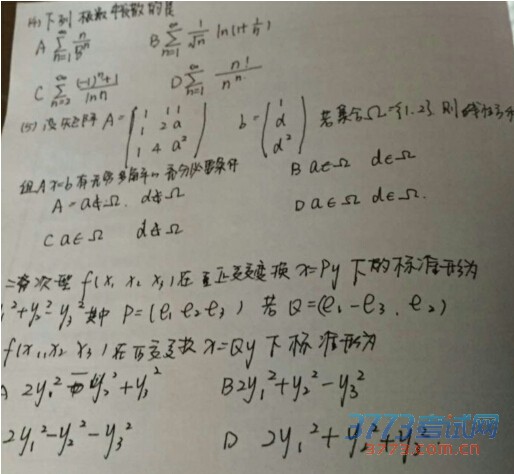 (4) 下列级数中发散的是
A ∑_{n=1}^{∞} n/3^n B ∑_{n=1}^{∞} 1/√n ln(1+1/n)
C ∑_{n=2}^{∞} (-1)^n+1/ln n D ∑_{n=1}^{∞} n!/n^n.
(5) 设矩阵 A=(1 1 1; 1 2 a; 1 4 a²) b=(1; d; d²) 若集合Ω={1.2} 则线性方
组Ax=b有无穷多解的充分必要条件
A = a∉Ω. d∉Ω B a∈Ω d∈Ω
C a∈Ω d∉Ω D a∈Ω d∈Ω.
二次型 f(x₁ x₂ x₃)在正交变换 x=Py 下的标准形为
y₁²+y₂²-y₃² 其中 P=(e₁ e₂ e₃) 若 Q=(e₁-e₃. e₂)
f(x₁,x₂ x₃)在正交变换 x=Qy 下标准形为
A 2y₁²-y₂²+y₃² B 2y₁²+y₂²-y₃²
2y₁²-y₂²-y₃² D 2y₁²+y₂²+y₃²
3773考试网